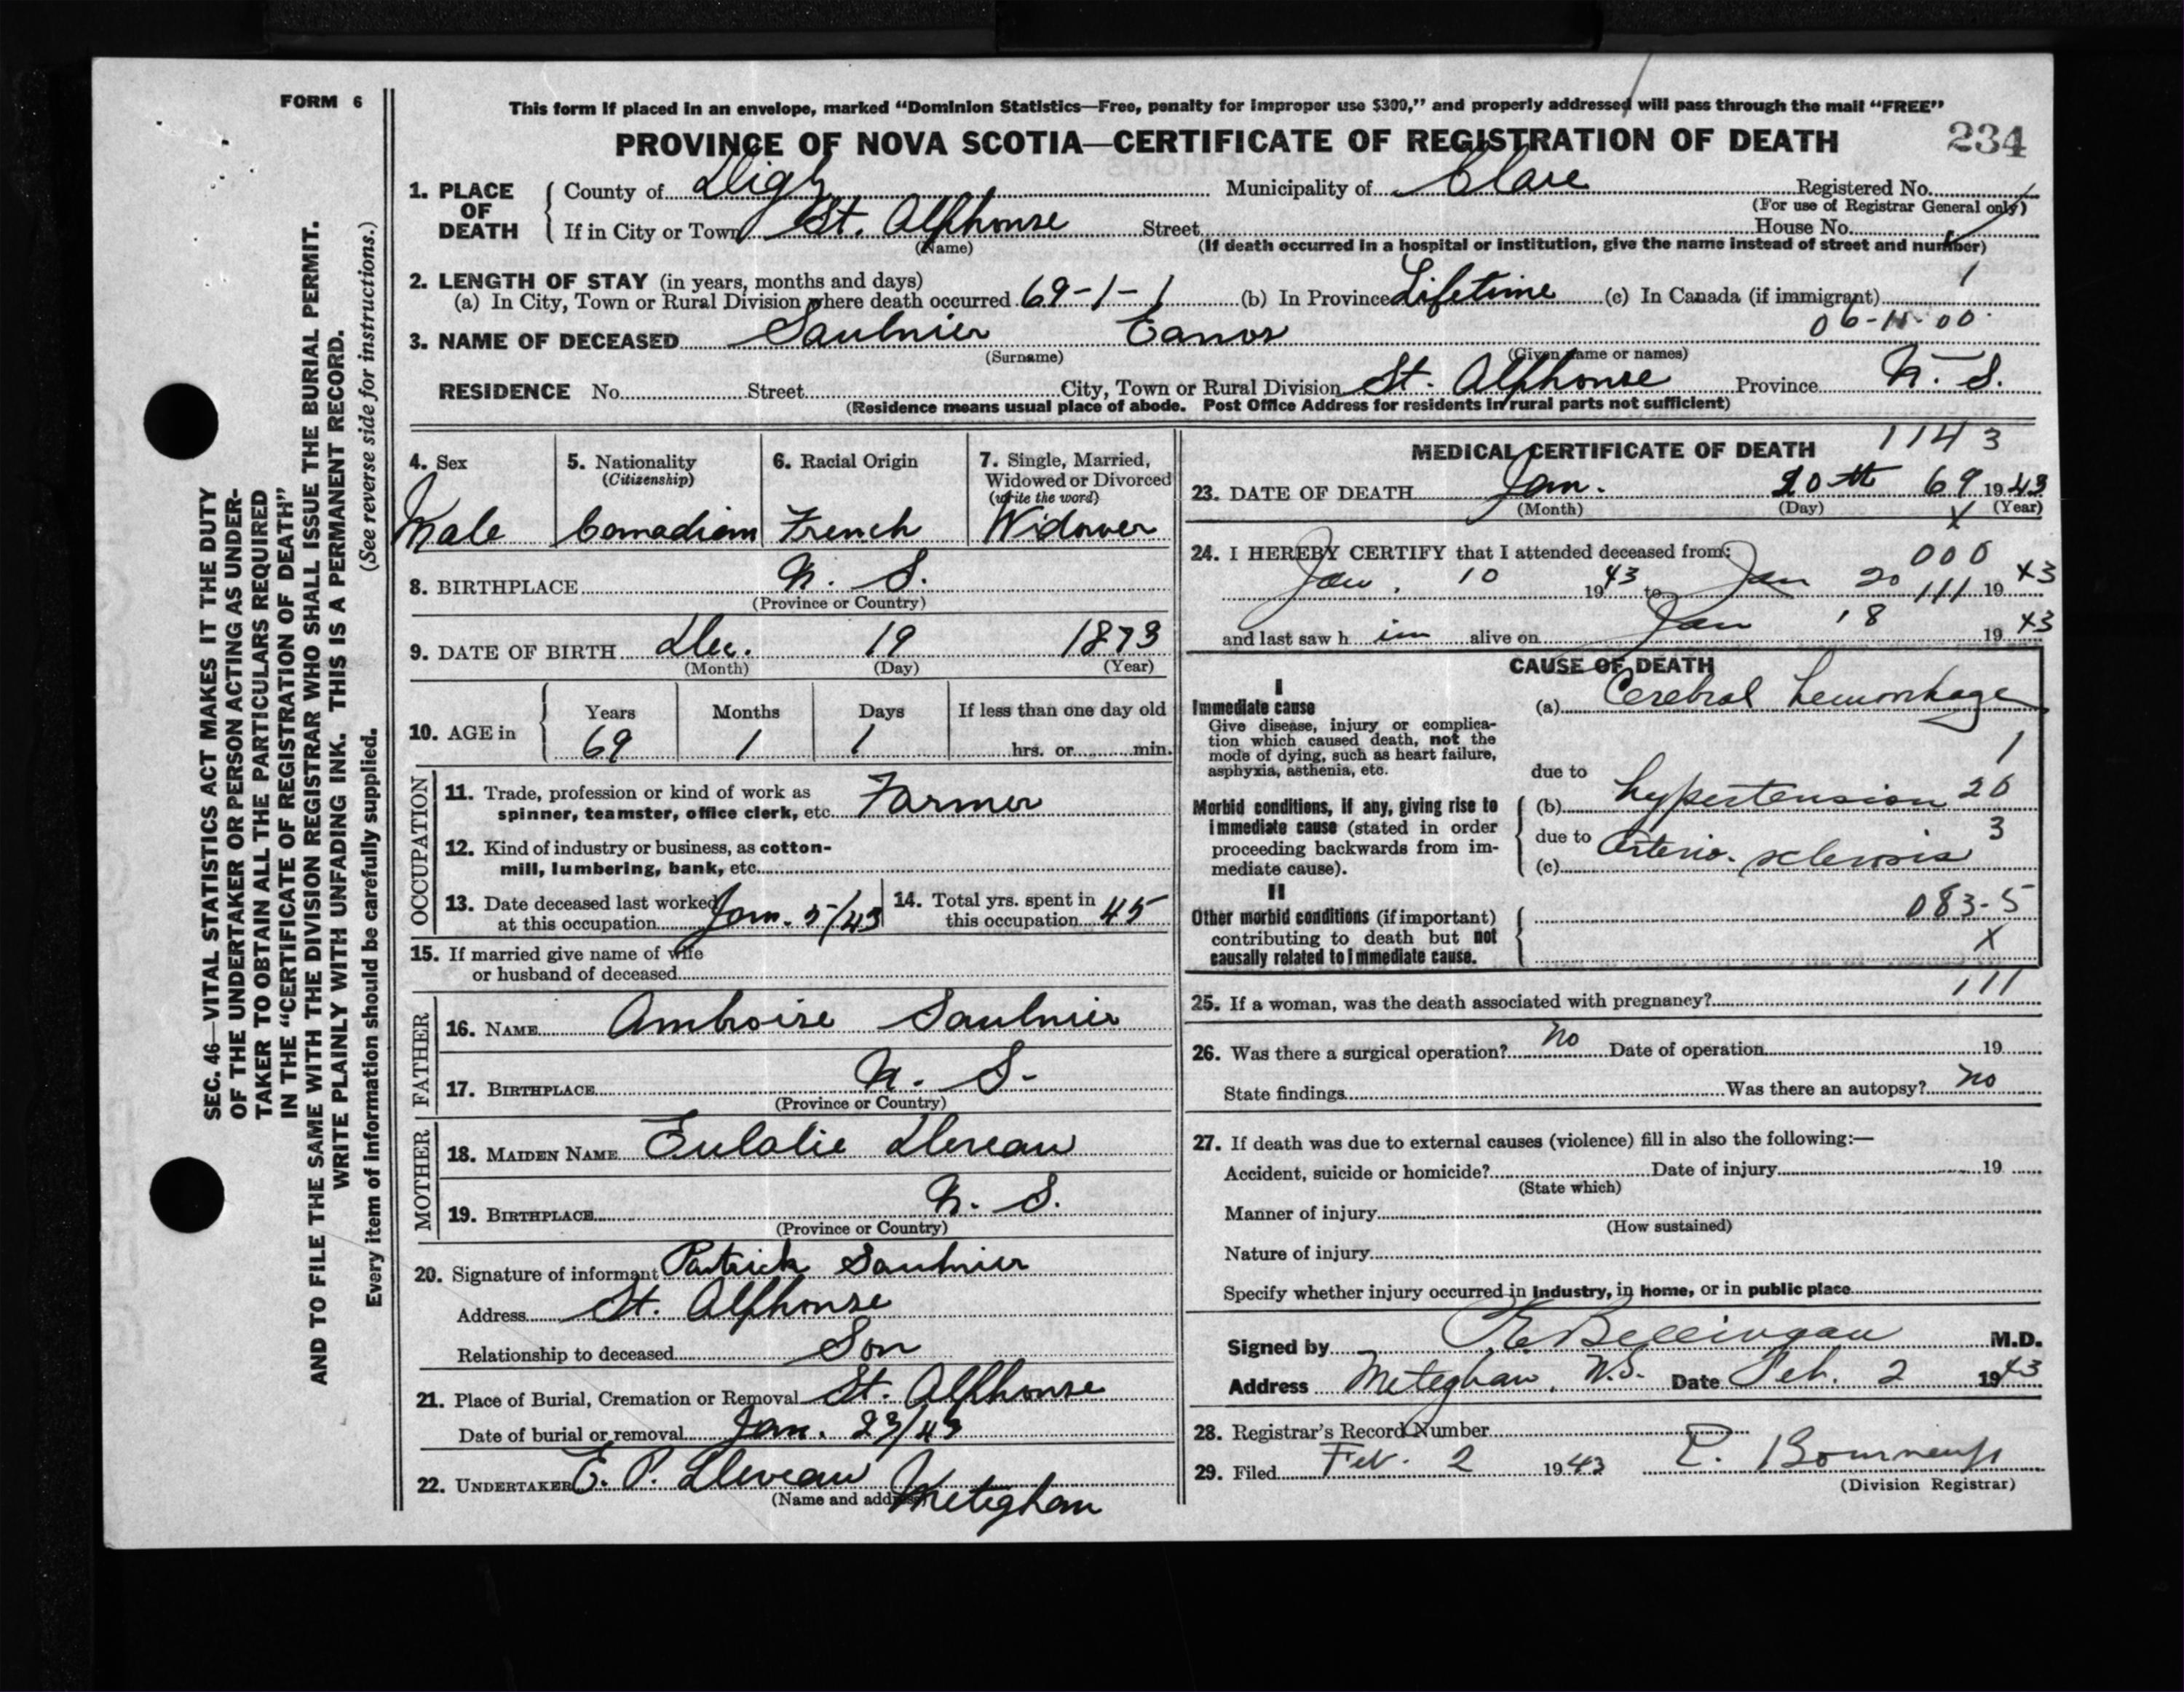 FORM 6
This form if placed in an envelope, marked “Dominion Statistics—Free, penalty for improper use $300,” and properly addressed will pass through the mail “FREE”
PROVINCE OF NOVA SCOTIA—CERTIFICATE OF REGISTRATION OF DEATH 234
1. PLACE OF DEATH County of Digby Municipality of Clare Registered No.
(For use of Registrar General only)
If in City or Town St. Alphonse Street House No.
(Name) (If death occurred in a hospital or institution, give the name instead of street and number)
2. LENGTH OF STAY (in years, months and days) 1
(a) In City, Town or Rural Division where death occurred 69-1-1 (b) In Province Lifetime (c) In Canada (if immigrant)
06-11-00
3. NAME OF DECEASED Saulnier Eanos
(Surname) (Given name or names)
RESIDENCE No. Street City, Town or Rural Division St. Alphonse Province N. S.
(Residence means usual place of abode. Post Office Address for residents in rural parts not sufficient)
4. Sex 5. Nationality (Citizenship) 6. Racial Origin 7. Single, Married, Widowed or Divorced (write the word)
Male Canadian French Widower
8. BIRTHPLACE N. S.
(Province or Country)
9. DATE OF BIRTH Dec. 19 1873
(Month) (Day) (Year)
10. AGE in Years Months Days If less than one day old
69 1 1 hrs. or min.
OCCUPATION
11. Trade, profession or kind of work as
spinner, teamster, office clerk, etc. Farmer
12. Kind of industry or business, as cotton-
mill, lumbering, bank, etc.
13. Date deceased last worked at this occupation Jan. 5/43 14. Total yrs. spent in this occupation 45
15. If married give name of wife
or husband of deceased
FATHER
16. NAME Ambroise Saulnier
17. BIRTHPLACE N. S.
(Province or Country)
MOTHER
18. MAIDEN NAME Eulalie Deveau
19. BIRTHPLACE N. S.
(Province or Country)
20. Signature of informant Patrick Saulnier
Address St. Alphonse
Relationship to deceased Son
21. Place of Burial, Cremation or Removal St. Alphonse
Date of burial or removal Jan. 23/43
22. UNDERTAKER E. P. Deveau Meteghan
(Name and address)
MEDICAL CERTIFICATE OF DEATH 1143
23. DATE OF DEATH Jan. 20th 69 1943
(Month) (Day) (Year)
X
24. I HEREBY CERTIFY that I attended deceased from: 000
Jan. 10 1943 to Jan 20 111 1943
and last saw him alive on Jan 18 1943
CAUSE OF DEATH
I
Immediate cause (a) Cerebral hemorrhage
Give disease, injury or complica-
tion which caused death, not the
mode of dying, such as heart failure,
asphyxia, asthenia, etc.
1
due to
Morbid conditions, if any, giving rise to
immediate cause (stated in order
proceeding backwards from im-
mediate cause).
(b) hypertension 20
due to Arterio-sclerosis 3
(c)
II
083-5
Other morbid conditions (if important)
contributing to death but not
causally related to immediate cause.
X
111
25. If a woman, was the death associated with pregnancy?
26. Was there a surgical operation? no Date of operation 19
State findings Was there an autopsy? no
27. If death was due to external causes (violence) fill in also the following:—
Accident, suicide or homicide? Date of injury 19
(State which)
Manner of injury
(How sustained)
Nature of injury
Specify whether injury occurred in industry, in home, or in public place
Signed by Belliveau M.D.
Address Meteghan, N.S. Date Feb. 2 1943
28. Registrar's Record Number
29. Filed Feb. 2 1943 Bourneuf
(Division Registrar)
SEC. 46—VITAL STATISTICS ACT MAKES IT THE DUTY
OF THE UNDERTAKER OR PERSON ACTING AS UNDER-
TAKER TO OBTAIN ALL THE PARTICULARS REQUIRED
IN THE “CERTIFICATE OF REGISTRATION OF DEATH”
AND TO FILE THE SAME WITH THE DIVISION REGISTRAR WHO SHALL ISSUE THE BURIAL PERMIT.
WRITE PLAINLY WITH UNFADING INK. THIS IS A PERMANENT RECORD.
Every item of information should be carefully supplied. (See reverse side for instructions.)